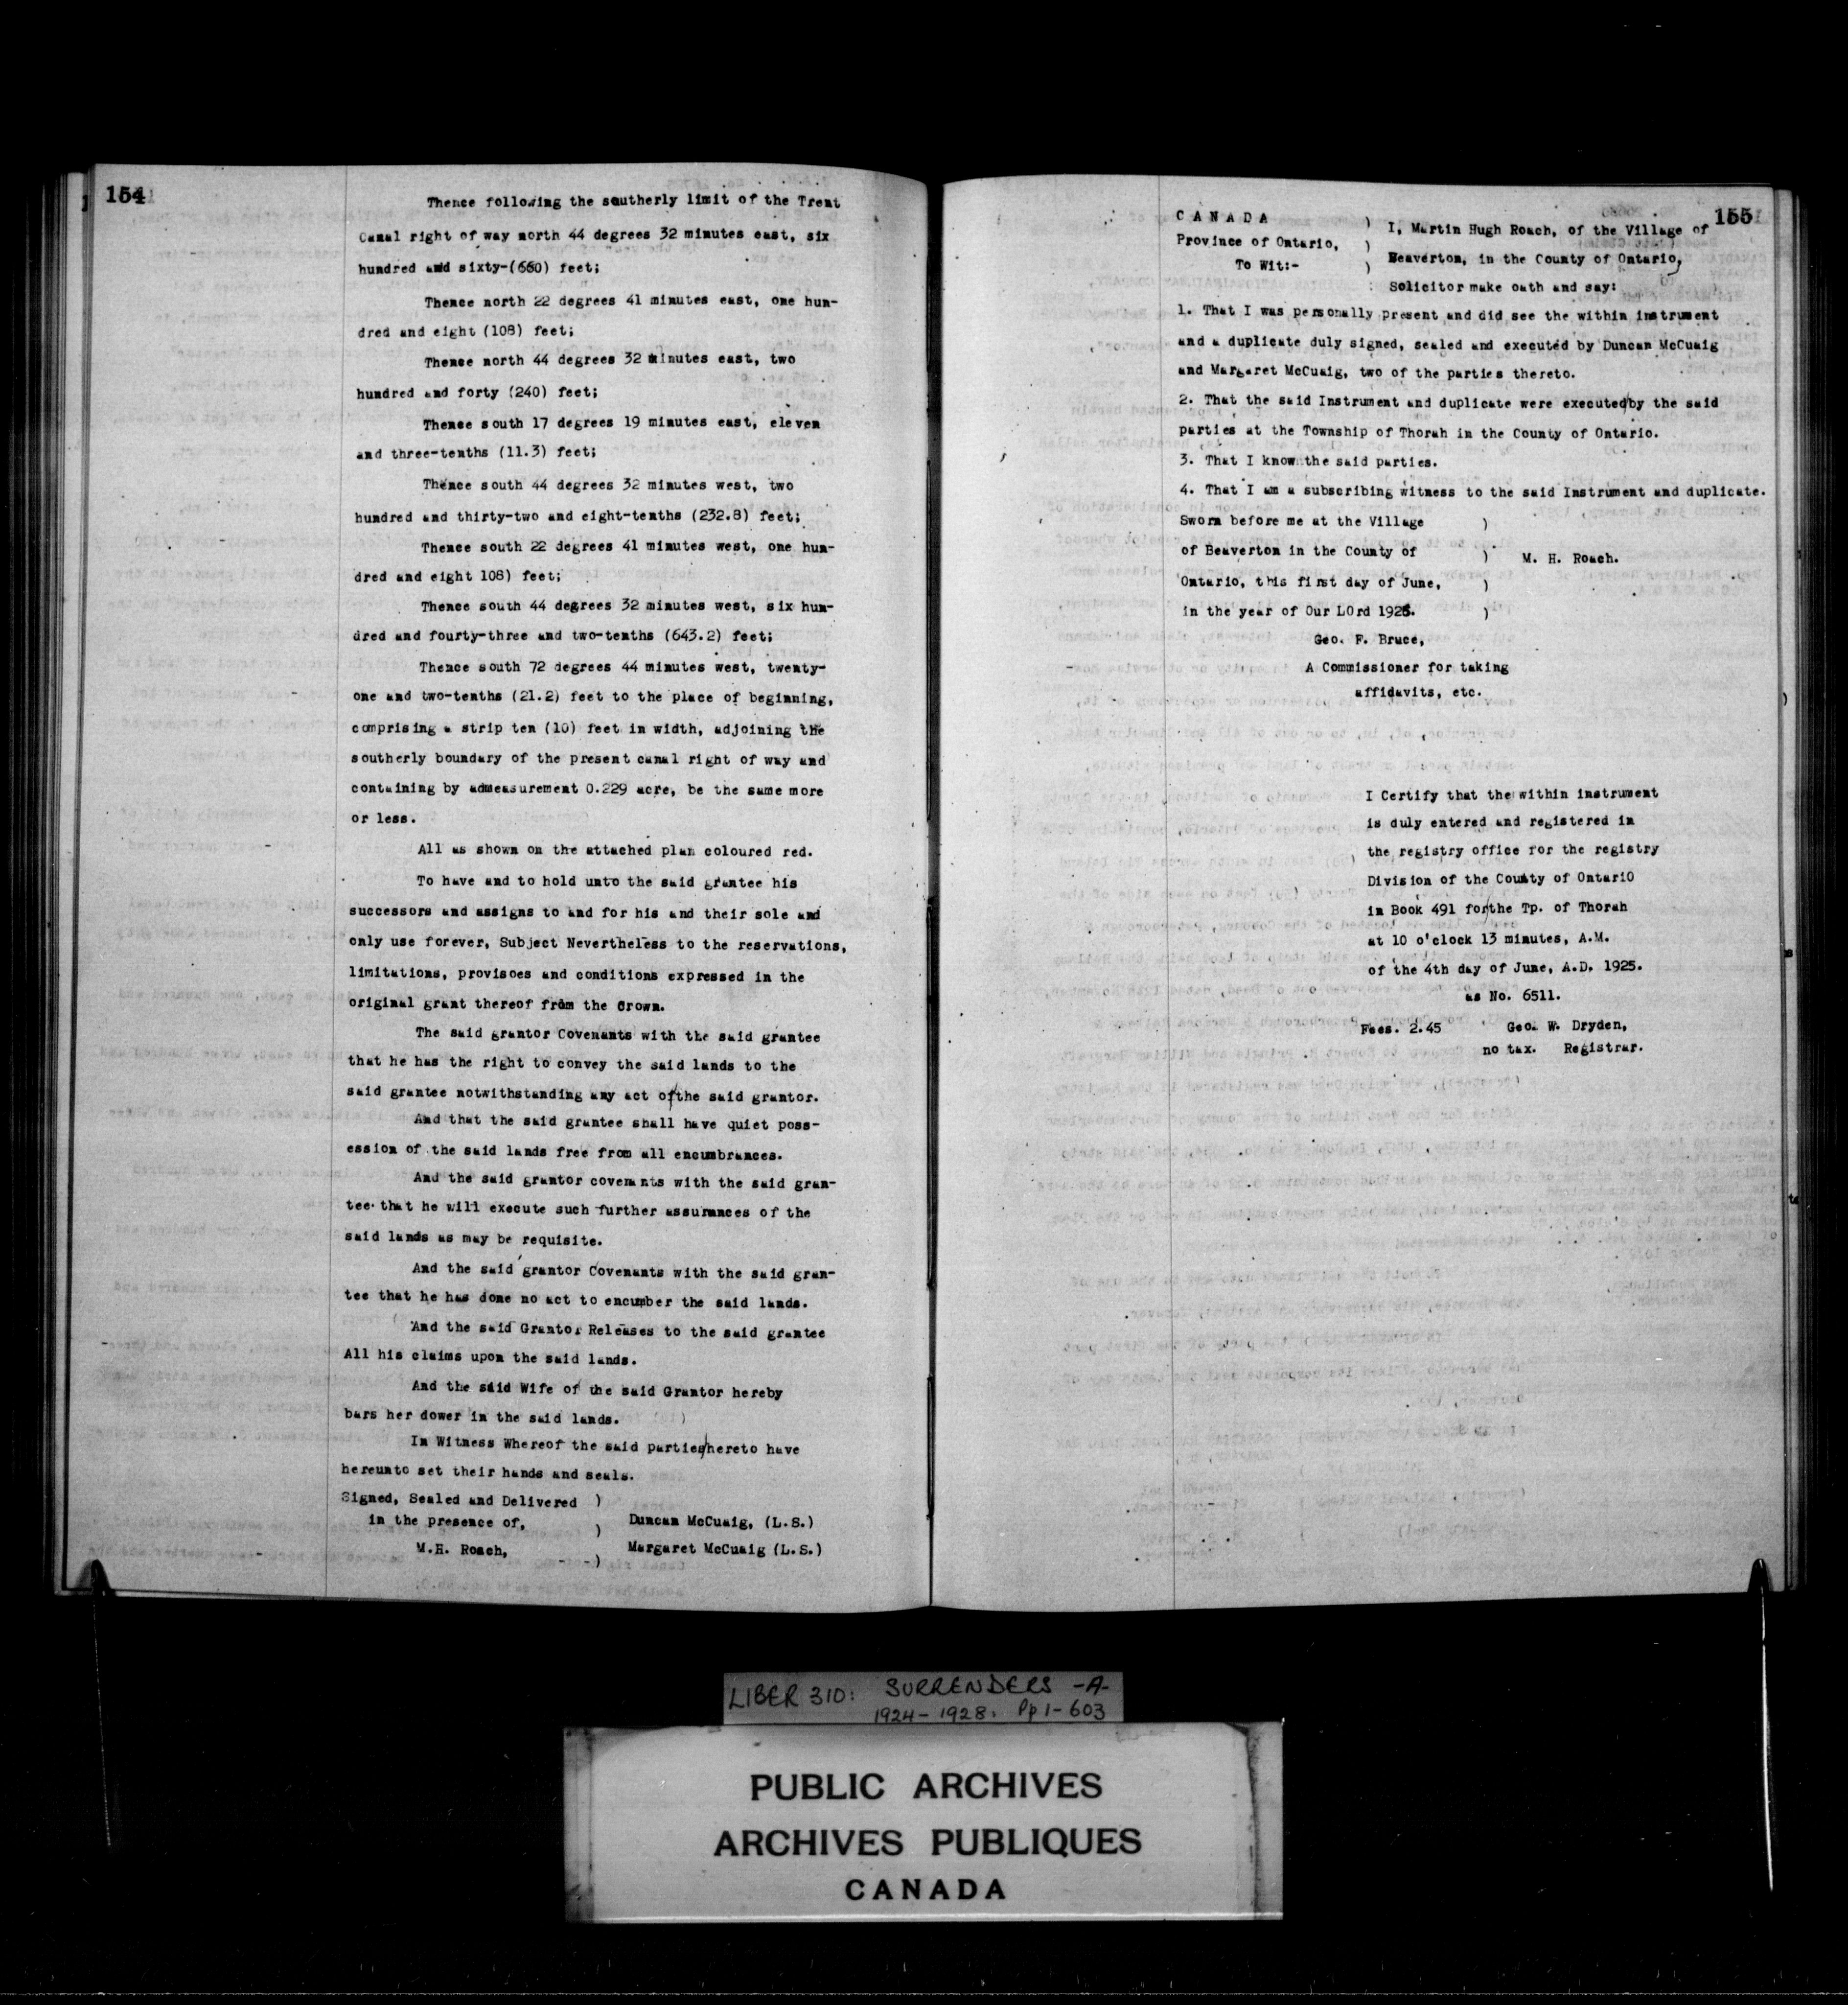 154
Thence following the southerly limit of the Trent
Canal right of way north 44 degrees 32 minutes east, six
hundred and sixty-(660) feet;
Thence north 22 degrees 41 minutes east, one hun-
dred and eight (108) feet;
Thence north 44 degrees 32 minutes east, two
hundred and forty (240) feet;
Thence south 17 degrees 19 minutes east, eleven
and three-tenths (11.3) feet;
Thence south 44 degrees 32 minutes west, two
hundred and thirty-two and eight-tenths (232.8) feet;
Thence south 22 degrees 41 minutes west, one hun-
dred and eight 108) feet;
Thence south 44 degrees 32 minutes west, six hun-
dred and fourty-three and two-tenths (643.2) feet;
Thence south 72 degrees 44 minutes west, twenty-
one and two-tenths (21.2) feet to the place of beginning,
comprising a strip ten (10) feet in width, adjoining the
southerly boundary of the present canal right of way and
containing by admeasurement 0.229 acre, be the same more
or less.
All as shown on the attached plan coloured red.
To have and to hold unto the said grantee his
successors and assigns to and for his and their sole and
only use forever, Subject Nevertheless to the reservations,
limitations, provisoes and conditions expressed in the
original grant thereof from the Crown.
The said grantor Covenants with the said grantee
that he has the right to convey the said lands to the
said grantee notwithstanding any act of/the said grantor.
And that the said grantee shall have quiet poss-
ession of the said lands free from all encumbrances.
And the said grantor covenants with the said gran-
tee that he will execute such further assurances of the
said lands as may be requisite.
And the said grantor Covenants with the said gran-
tee that he has done no act to encumber the said lands.
And the said Grantor Releases to the said grantee
All his claims upon the said lands.
And the said Wife of the said Grantor hereby
bars her dower in the said lands.
In Witness Whereof the said parties/hereto have
hereunto set their hands and seals.
Signed, Sealed and Delivered )
in the presence of, ) Duncan McCuaig, (L.S.)
M.H. Roach, - -) Margaret McCuaig (L.S.)
155
CANADA ) I, Martin Hugh Roach, of the Village of
Province of Ontario, ) Beaverton, in the County of Ontario,
To Wit:- ) Solicitor make oath and say:
1. That I was personally present and did see the within instrument
and a duplicate duly signed, sealed and executed by Duncan McCuaig
and Margaret McCuaig, two of the parties thereto.
2. That the said Instrument and duplicate were executed/by the said
parties at the Township of Thorah in the County of Ontario.
3. That I know the said parties.
4. That I am a subscribing witness to the said Instrument and duplicate.
Sworn before me at the Village )
of Beaverton in the County of ) M. H. Roach.
Ontario, this first day of June, )
in the year of Our LOrd 1925. )
Geo. F. Bruce,
A Commissioner for taking
affidavits, etc.
I Certify that the within instrument
is duly entered and registered in
the registry office for the registry
Division of the County of OntariO
in Book 491 for/the Tp. of Thorah
at 10 o'clock 13 minutes, A.M.
of the 4th day of June, A.D. 1925.
as No. 6511.
Fees. 2.45 Geo. W. Dryden,
no tax. Registrar.
LIBER 310: SURRENDERS -A-
1924-1928. Pp 1-603
PUBLIC ARCHIVES
ARCHIVES PUBLIQUES
CANADA